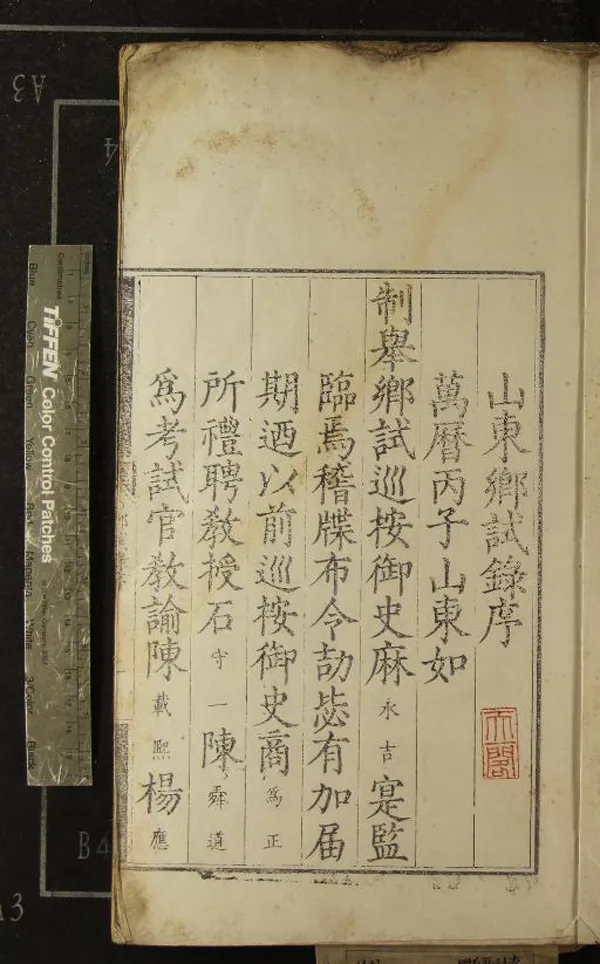 山東鄉試錄序
萬曆丙子山東如
制舉鄉試巡按御史麻永吉寔監
臨焉稽牒布令劼毖有加屆
期迺以前巡按御史商為正
所禮聘教授石守一陳舜道
為考試官教諭陳載熙楊應
天一閣
TIFFEN Color Control Patches
Blue Cyan Green Yellow Red Magenta White 3/Color Black
Centimetres
A3
4
B4
A3